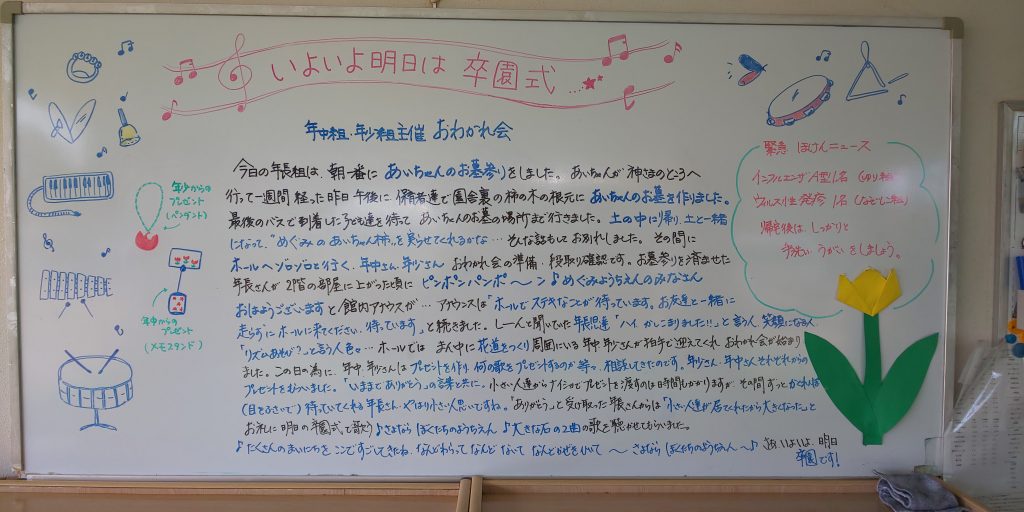 いよいよ明日は 卒園式…
年中組・年少組主催 おわかれ会
今日の年長組は、朝一番に あいちゃんのお墓参りをしました。あいちゃんが 神さまのところへ
行って一週間 経った昨日 午後に、保育者達で 園舎裏の柿の木の根元に あいちゃんのお墓を作りました。
最後のバスで到着した子ども達を待って あいちゃんのお墓の場所まで行きました。土の中に帰り、土と一緒
になって、"めぐみの あいちゃん柿"を実らせてくれるかな… そんな話もして お別れしました。その間に
ホールへゾロゾロと行く、年中さん、年少さん おわかれ会の準備・段取り確認です。お墓参りを済ませた
年長さんが 2階の部屋に上がった頃に ピンポンパンポ〜ン♪ めぐみようちえんのみなさん
おはようございます と館内アナウンスが… アナウンスは「ホールでステキなことが待っています。お友達と一緒に
走らずにホールに来てください。待っています。」と続きました。しーんと聞いていた年長児達「ハイ、かしこまりました!!」と言う人、笑顔になる人
「リズムあそび?」と言う人色々… ホールでは まん中に花道をつくり周囲にいる年中・年少さんが拍手で迎えてくれ おわかれ会が始まり
ました。この日の為に、年中・年少さんは プレゼントを作り、何の歌をプレゼントするのか等々、相談してきたのです。年少さん・年中さんそれぞれからの
プレゼントをもらいました。「いままで ありがとう」の言葉と共に。小さい人達から ナイショでプレゼントを渡すのは時間もかかりますが、その間 ずっと
(目をふさいで) 待っていてくれる 年長さん。やはり小さい人思いですね。「ありがとう」と受け取った 年長さんからは「小さい人達が居てくれたから大きくなった」と
お礼に 明日の卒園式で歌う ♪さよなら ぼくたちのようちえん ♪大きな石 の2曲の歌を聴かせてもらいました。
♪たくさんのまいにちを ここですごしてきたね。なんどわらって なんど ないて なんどかぜをひいて 〜 さよなら ぼくたちのようちえん〜♪ さあ、いよいよ、明日
卒園です!
年少からの
プレゼント
(ペンダント)
年中からの
プレゼント
(メモスタンド)
緊急 ほけんニュース
インフルエンザA型1名
ウィルス性発疹 1名 (なでしこ組)
帰宅後は しっかりと
手洗い うがい をしましょう。